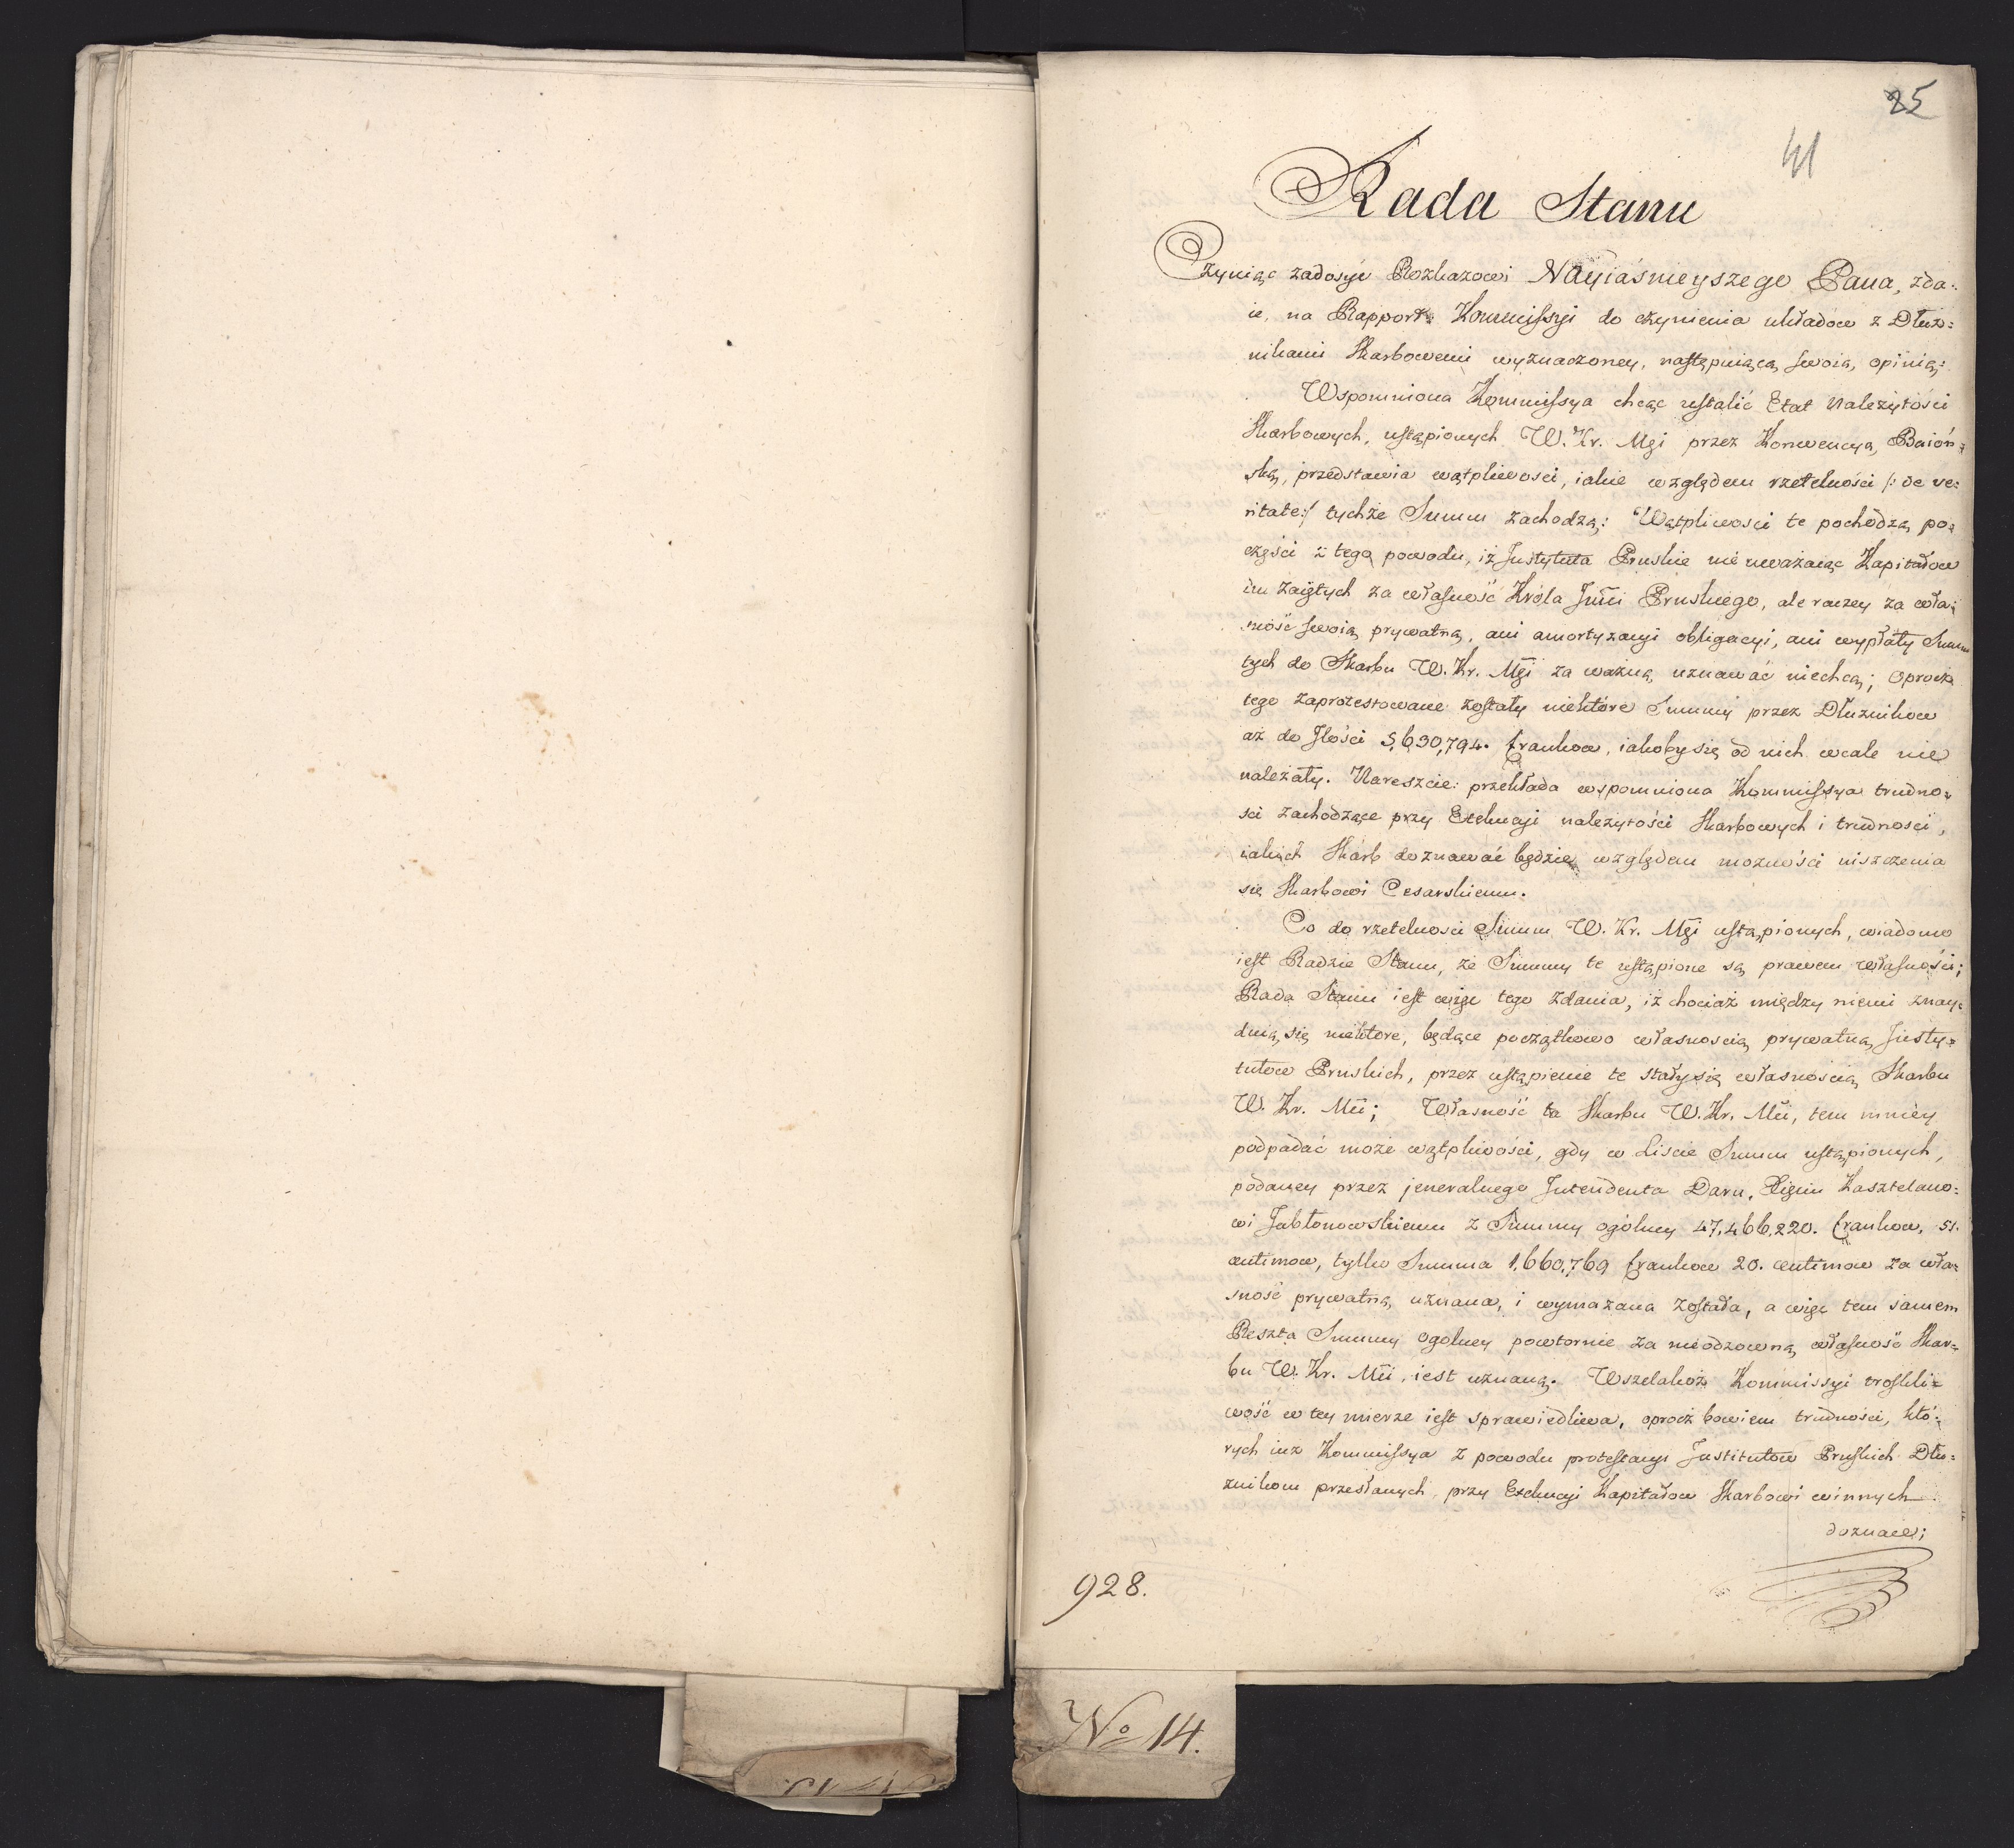 25
41
Rada Stanu
Czyniąc zadosyć Rozkazowi Nayiaśnieyszego Pana, zda:
ie, na Rapport Kommissyi do czynienia układow z Dłuż:
nikami Skarbowemi wyznaczoney, następuiącą swoią opinią:
Wspomniona Kommissya chcąc ustalić Etat Należytości
Skarbowych, ustąpionych W. Kr. Mći przez Konwencyą Baioń:
ską, przedstawia wątpliwości, iakie względem rzetelności /: de ve:
ritate :/ tychże Summ zachodzą: Wątpliwosci te pochodzą po:
części z tego powodu, iż Instytuta Pruskie nie uważaiąc Kapitałow
im zaiętych za własność Króla Jmći Pruskiego, ale raczey za wła:
sność swoią prywatną, ani amortyzacyi obligacyi, ani wypłaty Summ
tych do Skarbu W. Kr. Mći za ważną uznawać niechcą; oprocz
tego zaprotestowane zostały niektóre Summy przez Dłużnikow
aż do Jlości 5,630,794. frankow, iakoby się od nich wcale nie
należały. Nareszcie: przekłada wspomniona Kommissya trudno:
sci zachodzące przy Exekucyi należytości Skarbowych i trudnosci,
iakich Skarb doznawać będzie względem możności uiszczenia
się Skarbowi Cesarskiemu.
Co do rzetelnosci Summ W. Kr. Mći ustąpionych, wiadomo
iest Radzie Stanu, że Summy te ustąpione są prawem własności;
Rada Stanu iest więc tego zdania, iż chociaż między niemi znay:
duią się niektore, będące początkowo własnoscią prywatną Insty:
tutow Pruskich, przez ustąpienie te stały się własnoscią Skarbu
W. Kr. Mći; Własność ta Skarbu W. Kr. Mći, tem mniey
podpadać może wątpliwości, gdy w Liscie Summ ustąpionych,
podaney przez jeneralnego Intendenta Daru, Kasztelano:
wi Jabłonowskiemu z Summy ogólney 47,466,220. frankow, 51.
centimow, tylko Summa 1,660,769 frankow 20. centimow za wła:
sność prywatną uznana, i wymazana została, a więc tem samem
Reszta Summy ogólney powtornie za nieodzowną własność Skar:
bu W. Kr. Mći, iest uznaną. Wszelakoż Kommissyi troskli:
wość w tey mierze iest sprawiedliwa, oprocz bowiem trudności, któ:
rych iuż Kommissya z powodu protestacyi Institutow Pruskich Dłu:
żnikom przesłanych, przy Exekucyi Kapitałow Skarbowi winnych
doznaie;
928.
No 14.